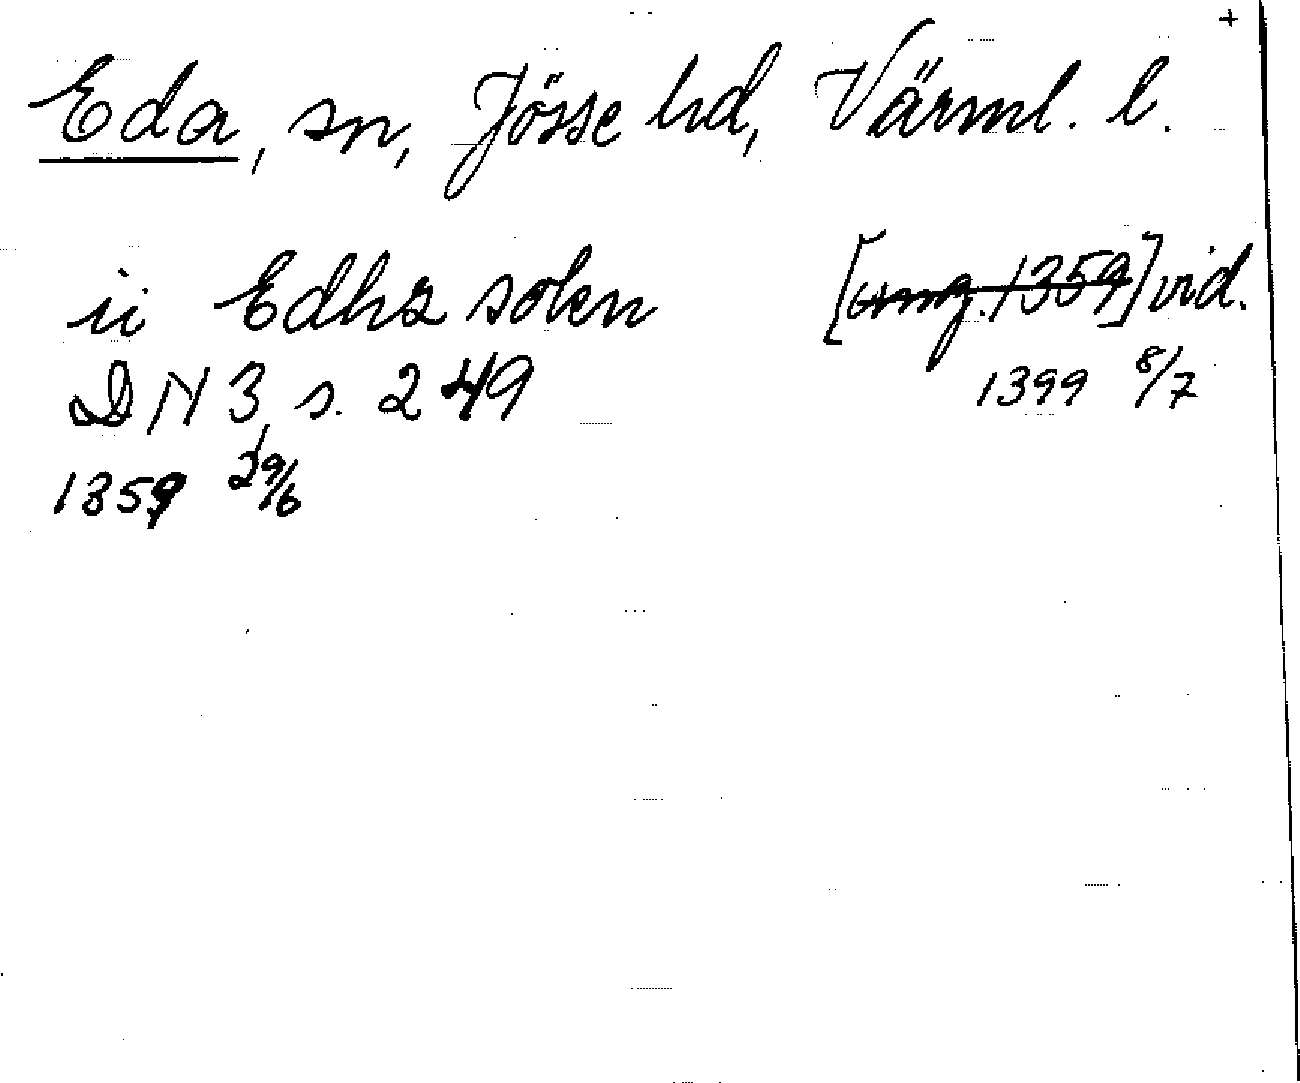 +
Eda, sn, Jösse hd, Värml. l.
ii Edhz sokn [omg. 1359] vid.
DN 3, s. 249 1399 8/7
1359 29/6